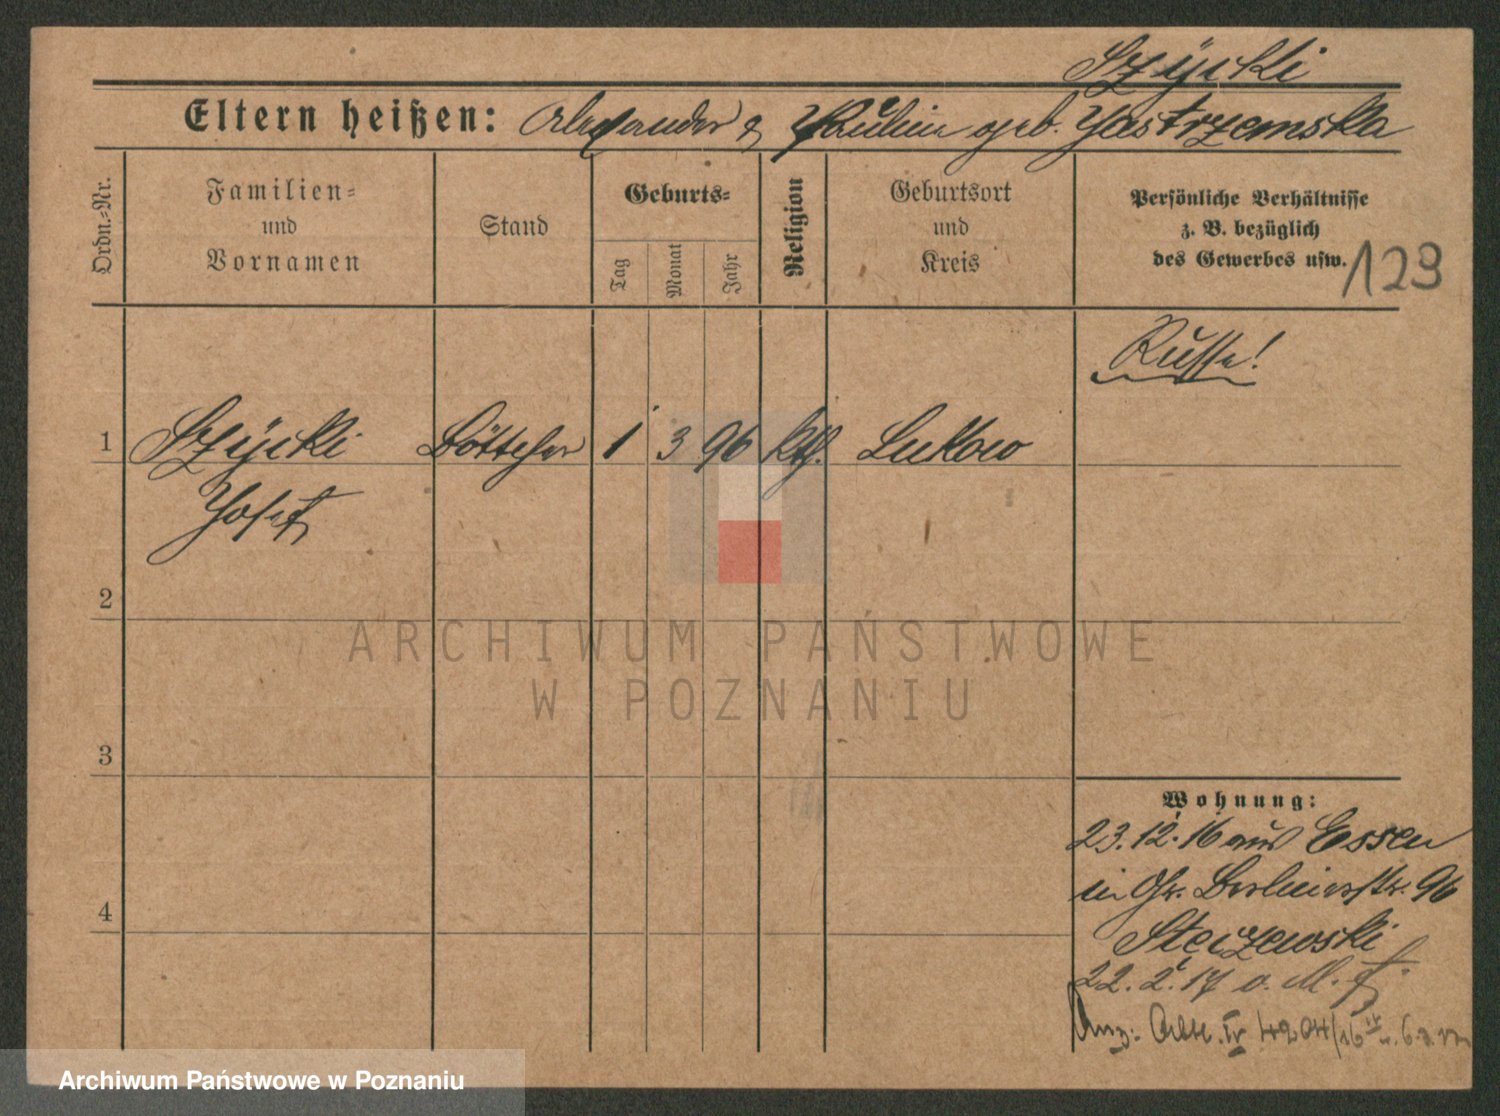 Szÿcki
Eltern heißen: Alexander & Pauline geb. Jastrzemska
Ordn.-Nr.
Familien-
und
Vornamen
Stand
Geburts-
Tag
Monat
Jahr
Religion
Geburtsort
und
Kreis
Persönliche Verhältnisse
z. B. bezüglich
des Gewerbes usw.
123
Russe!
1 Szÿcki Böttcher 1 3 96 kth. Lukow
Josef
2
3
4
Wohnung:
23.12.16 aus Essen
in Gr. Berlinerstr. 96
Steczewski
22.2.17 o. M. f.
Anz. Abtl. IV 4204/16
ARCHIWUM PAŃSTWOWE
W POZNANIU
Archiwum Państwowe w Poznaniu